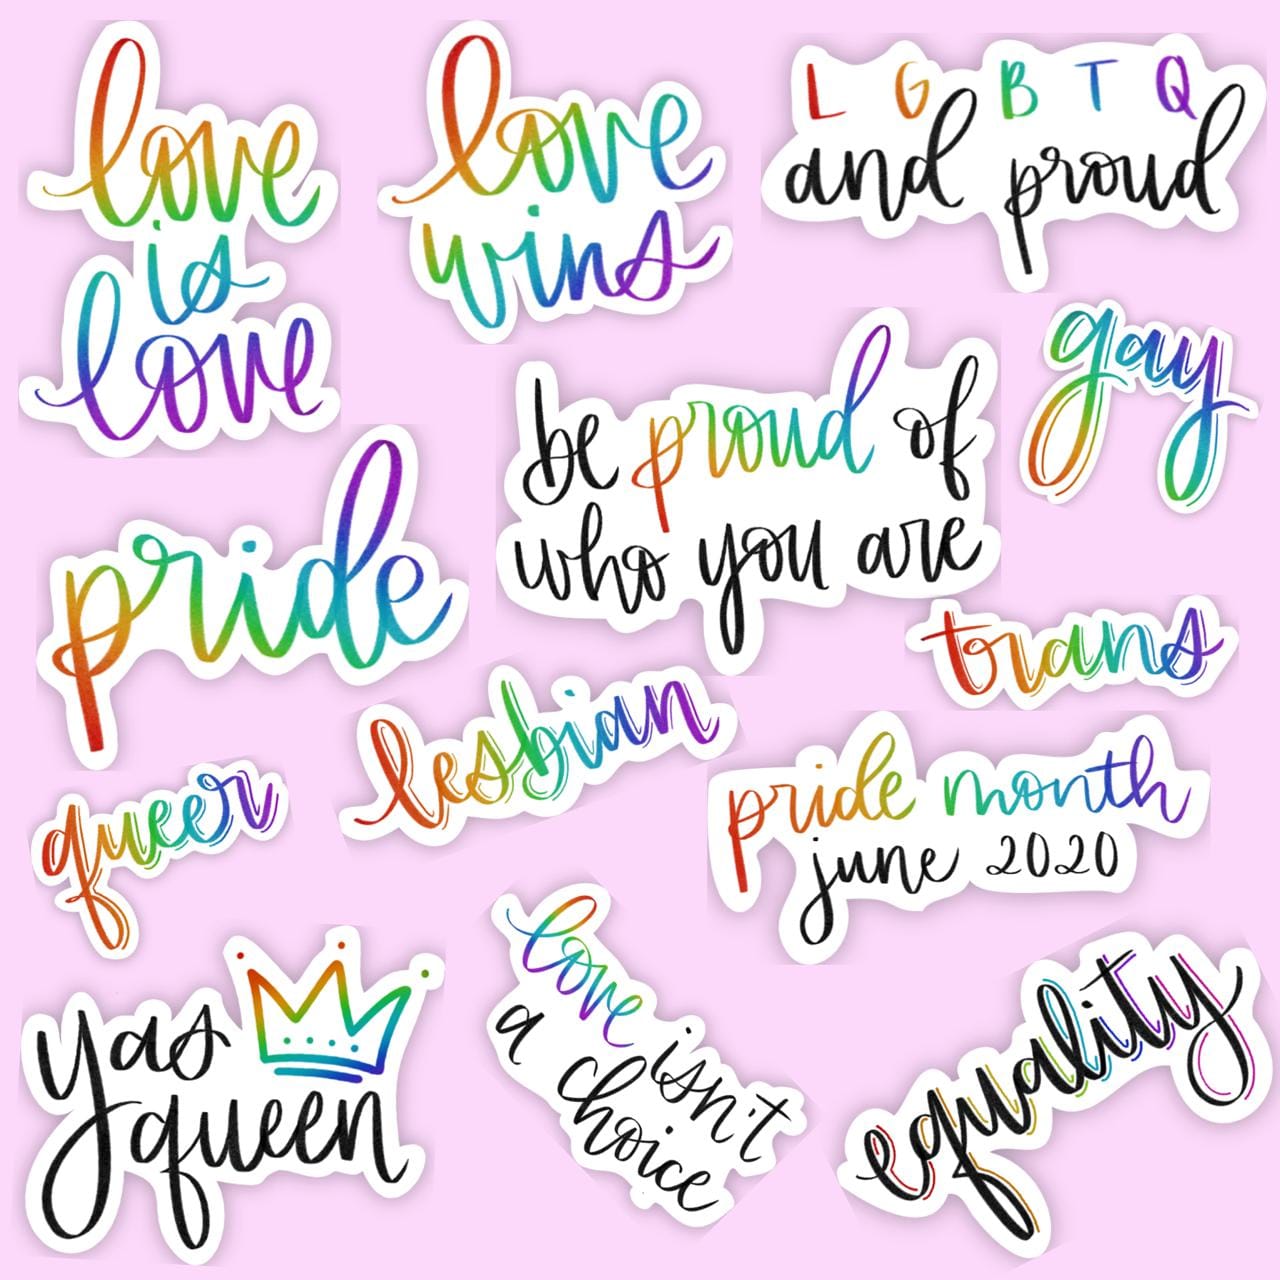 love
is
love
love
wins
L G B T Q
and proud
be proud of
who you are
gay
pride
trans
lesbian
pride month
june 2020
queer
yas
queen
love isn't
a choice
equality